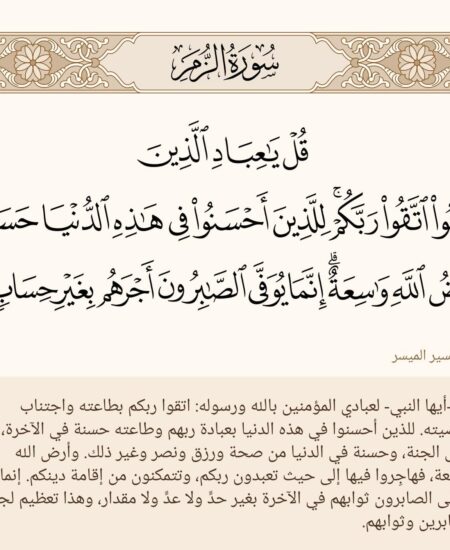 سُورَةُ الزُّمَرِ
قُلْ يَٰعِبَادِ ٱلَّذِينَ
ٱتَّقُوا۟ رَبَّكُمْ ۚ لِلَّذِينَ أَحْسَنُوا۟ فِى هَٰذِهِ ٱلدُّنْيَا
ٱللَّهِ وَٰسِعَةٌ ۗ إِنَّمَا يُوَفَّى ٱلصَّٰبِرُونَ أَجْرَهُم بِغَيْرِ حِسَابٍ
الميسر
-أيها النبي- لعبادي المؤمنين بالله ورسوله: اتقوا ربكم بطاعته واجتناب
للذين أحسنوا في هذه الدنيا بعبادة ربهم وطاعته حسنة في الآخرة،
الجنة، وحسنة في الدنيا من صحة ورزق ونصر وغير ذلك. وأرض الله
فهاجِروا فيها إلى حيث تعبدون ربكم، وتتمكنون من إقامة دينكم. إنما
الصابرون ثوابهم في الآخرة بغير حدٍّ ولا عدٍّ ولا مقدار، وهذا تعظيم
وثوابهم.